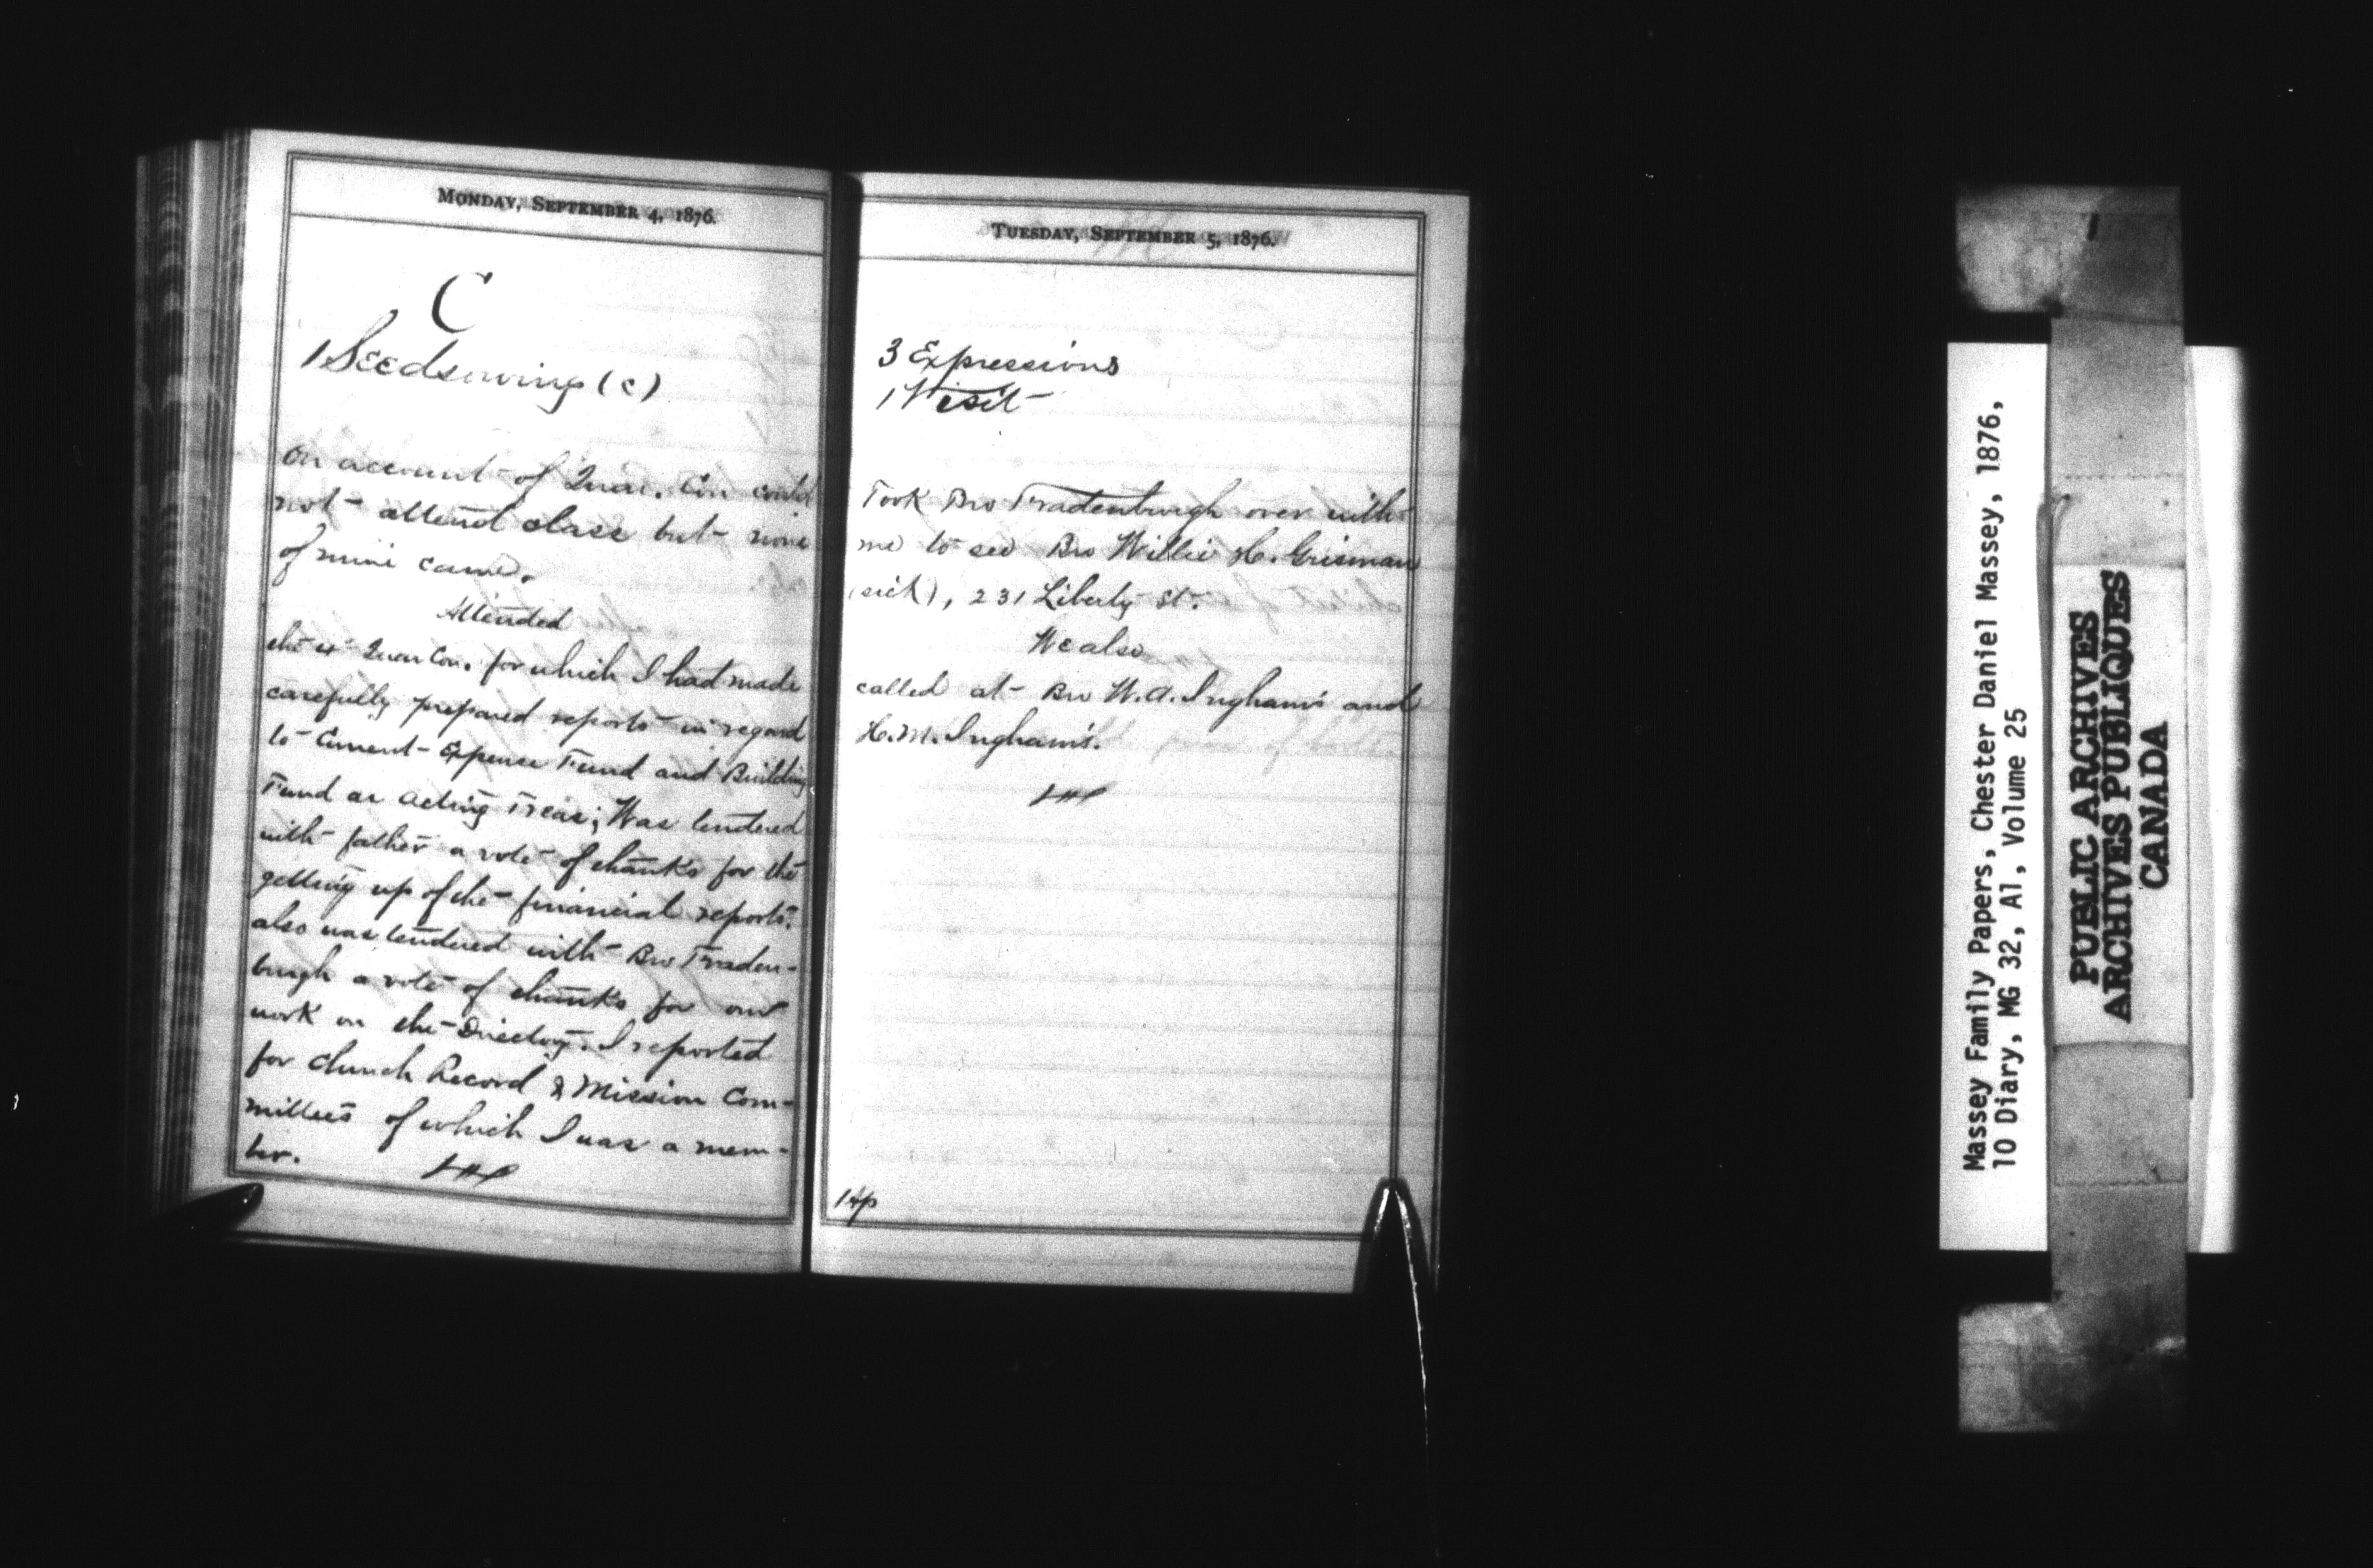 MONDAY, SEPTEMBER 4, 1876.
C
1 Seedsowing (c)
On account of Quar. Con could
not attend class but none
of mine came.
Attended
the 1st Quar Con. for which I had made
carefully prepared reports in regard
to Current Expense Fund and Building
Fund as acting Treas; Was tendered
with father a vote of thanks for the
getting up of the financial reports.
also was tendered with Bro Traden-
burgh a vote of thanks for our
work on the Directory. I reported
for Church Record & Mission Com-
mittees of which I was a mem-
ber.
TUESDAY, SEPTEMBER 5, 1876.
3 Expressions
1 Visit
Took Bro Tradenburgh over with
me to see Bro Willie H. Crisman
(sick), 231 Liberty St.
We also
called at Bro W. A. Ingham's and
H. M. Ingham's.
Massey Family Papers, Chester Daniel Massey, 1876,
10 Diary, MG 32, A1, Volume 25
PUBLIC ARCHIVES
ARCHIVES PUBLIQUES
CANADA